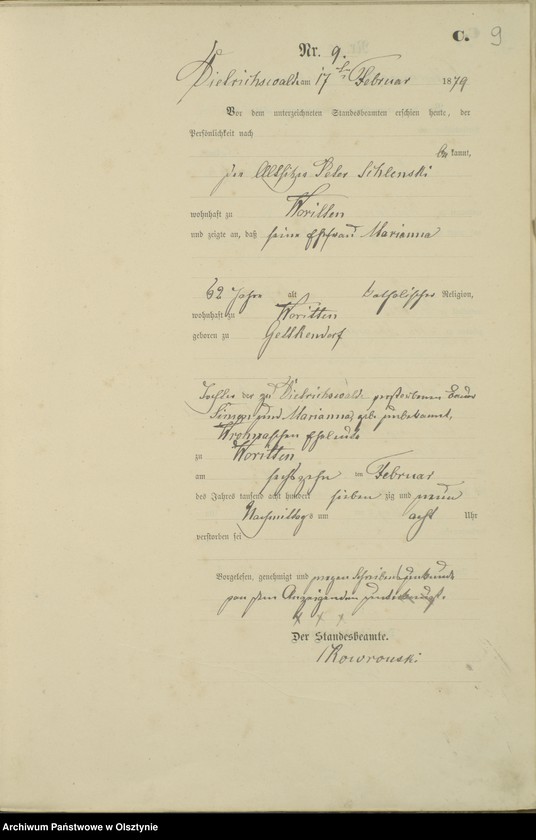 C. 9
Nr. 9.
Dietrichswalde am 17ten Februar 1879
Vor dem unterzeichneten Standesbeamten erschien heute, der
Persönlichkeit nach
bekannt,
der Altsitzer Peter
wohnhaft zu Woritten
und zeigte an, daß seine Ehefrau Marianna
62 Jahre alt katholischer Religion,
wohnhaft zu Woritten
geboren zu Gettkendorf
Tochter der zu Dietrichswalde verstorbenen
Simon und Marianna, geb. unbekannt,
Eheleute
zu Woritten
am sechszehn ten Februar
des Jahres tausend acht hundert sieben zig und neun
Nachmittags um acht Uhr
verstorben sei
Vorgelesen, genehmigt und wegen Schreibensunkunde
von dem Anzeigenden
x x x
Der Standesbeamte.
Skowronski
Archiwum Państwowe w Olsztynie